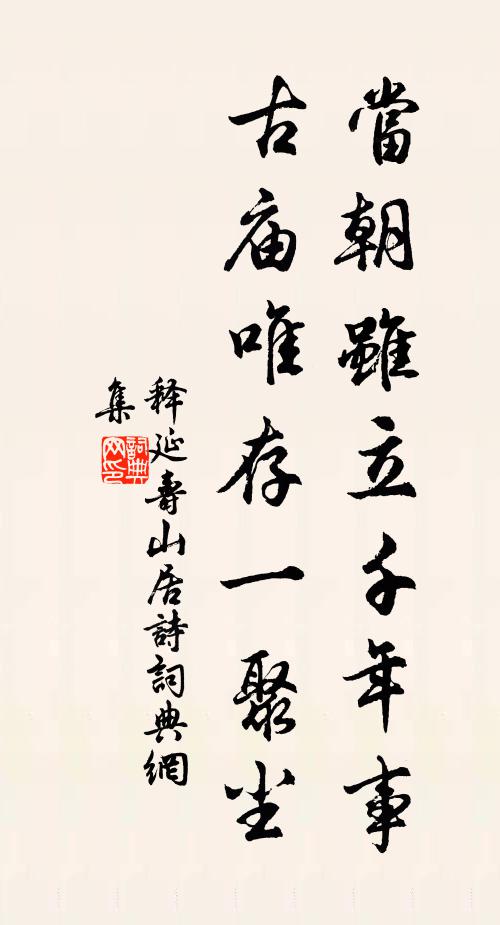 當朝雖立千年事
古庙唯存一聚尘
释延壽山居詩詞典網
集
詞典网印